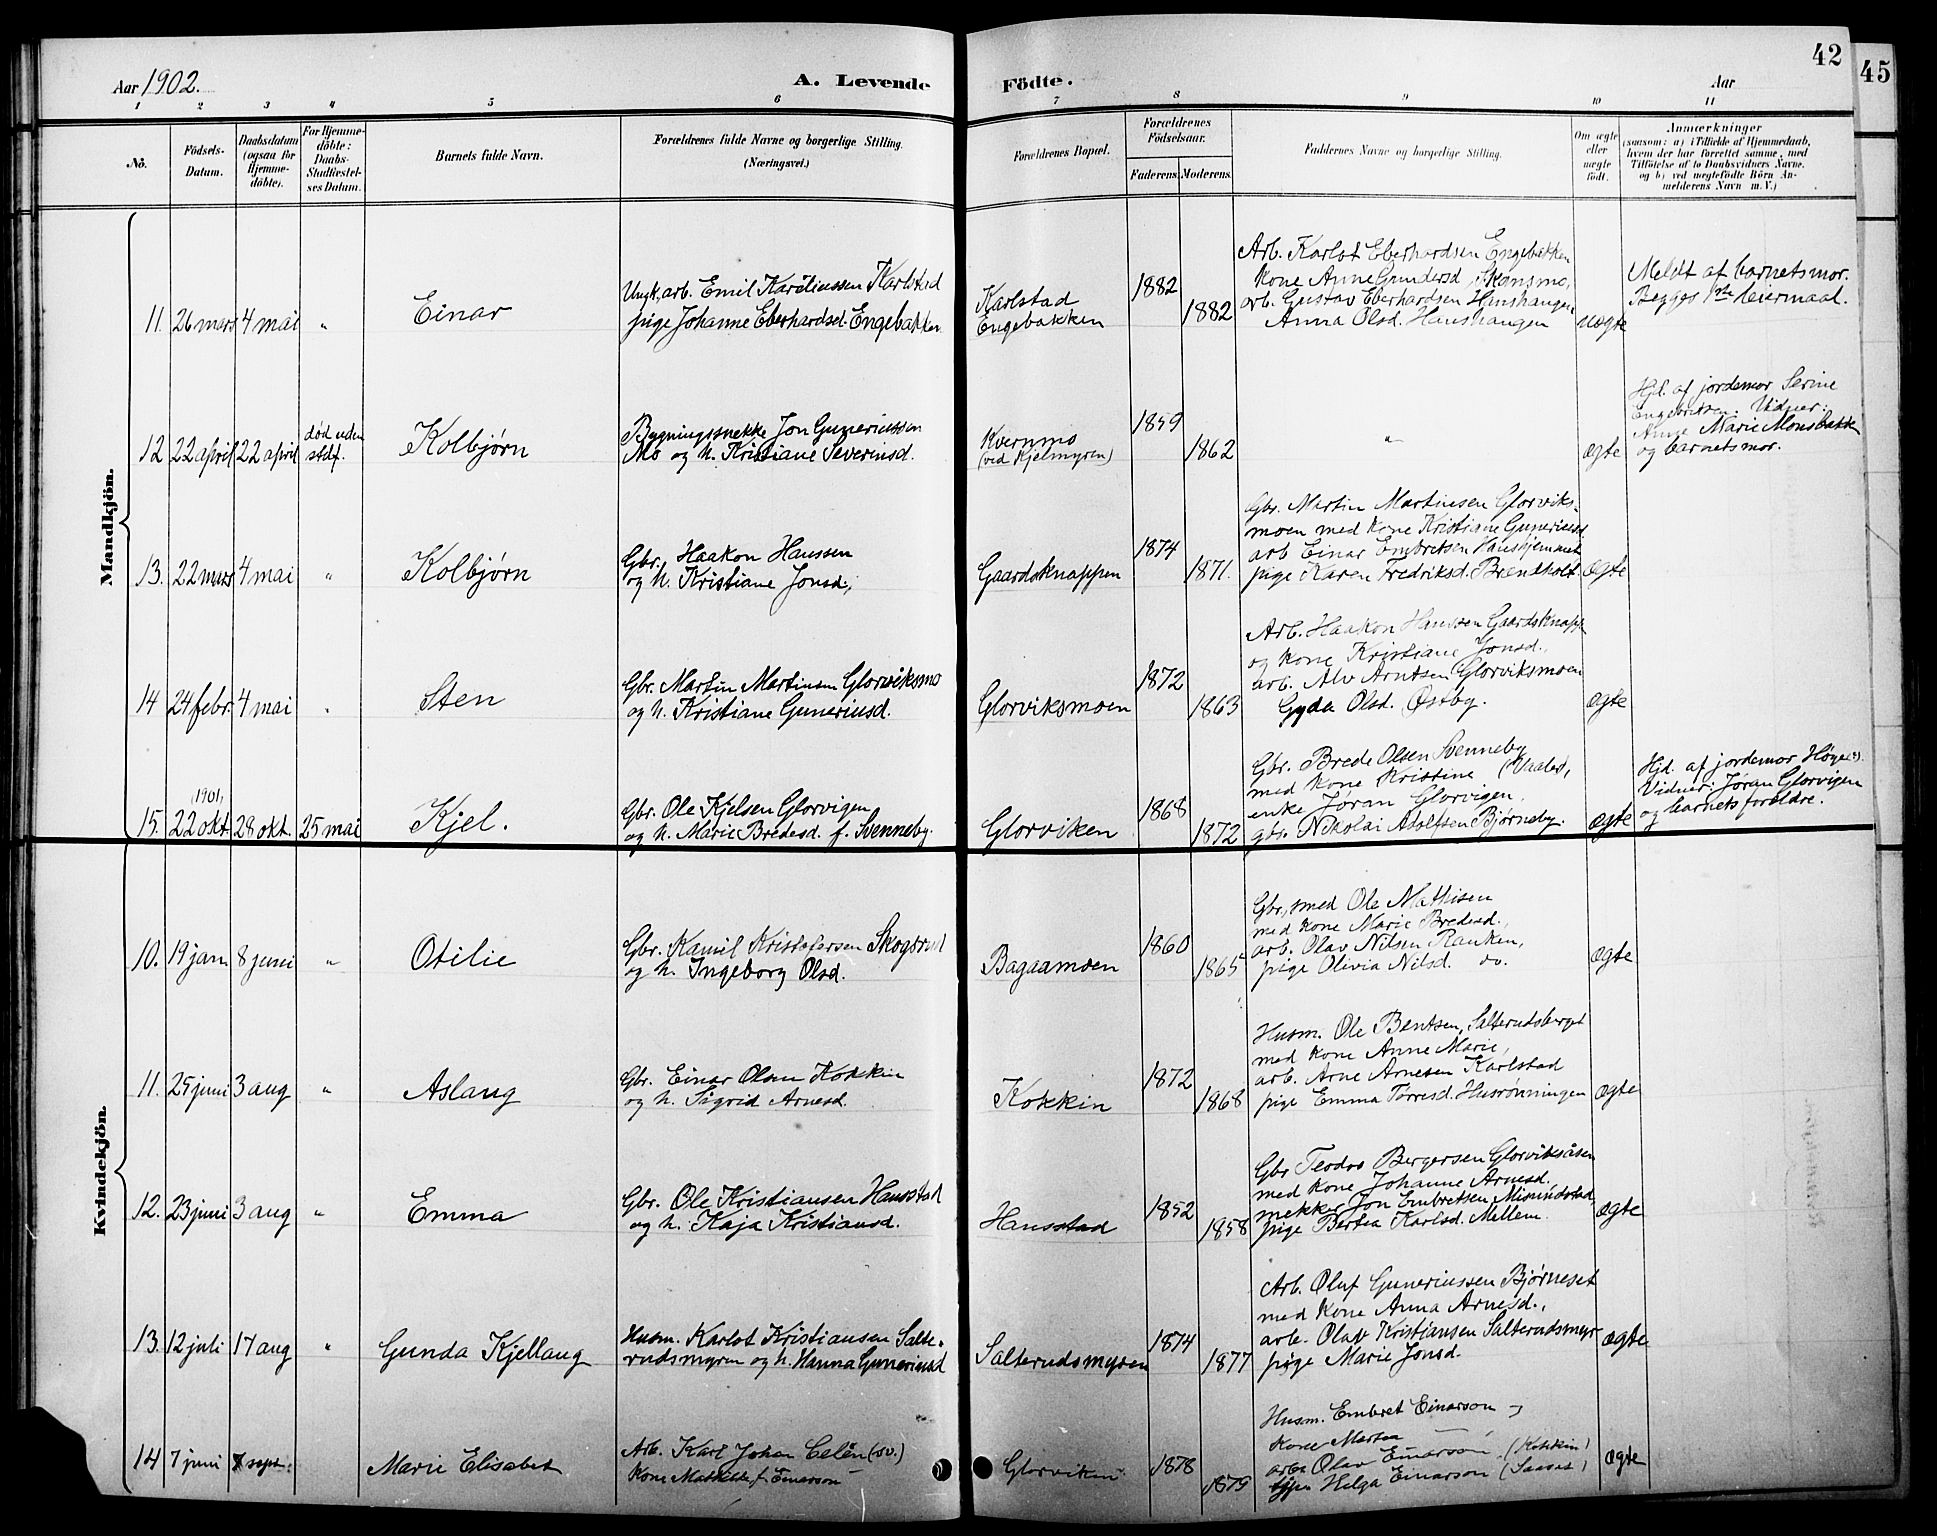 42
45
Aar 1902.
A. Levende Födte.
Aar
1 2 3 4 5 6 7 8 9 10 11
No.
Födsels-Datum.
Daabsdatum (ogsaa for Hjemme-döbte).
For Hjemme-döbte: Daabs-Stadfæstel-ses Datum.
Barnets fulde Navn.
Forældrenes fulde Navne og borgerlige Stilling.
(Næringsvei.)
Forældrenes Bopæl.
Forældrenes Födselsaar.
Faderens. Moderens.
Faddernes Navne og borgerlige Stilling.
Om ægte eller uægte født.
Anmærkninger
(saasom: a) i Tilfælde af Hjemmedaab,
hvem der har forrettet samme, med
Tilföielse af to Daabsvidners Navne.
og b) ved uægtefödte Börn An-
melderens Navn m. V.)
Mandkjön.
11. 26 mars 4 mai "
Einar
Ungk. arb. Emil Karéliussen Karlstad
pige Johanne Eberhardsd. Engebakken
Karlstad
Engebakken
1882
1882
Arb. Karlot Eberhardsen Engebakken
Kone Anne Gundersd. Skønsmo,
arb. Gustav Eberhardsen Hanshaugen,
Anna Olsd. Hanshaugen
uægte
Meldt af barnets mor.
Begges 1ste leiermaal.
12 22 april 22 april død uden stdf.
Kolbjørn
Bygningssnekke Jon Guneriussen
Mo og h. Kristiane Severinsd.
Kvernmo
(ved Kjelmyren)
1859
1862
"
ægte
Hjd. af jordemor Serine
Engebretsen. Vidner:
Marie Monsbakke
og barnets mor.
13. 22 mars 4 mai "
Kolbjørn
Gbr. Haakon Hanssen
og h. Kristiane Jonsd.,
Gaardsknappen
1874
1871.
Gbr. Martin Martinsen Glorviks-
moen med kone Kristiane Guneriusd.
arb Einar Embretsen Hanshjemmet
pige Karen Fredriksd. Brendholt.
ægte
14 24 febr. 4 mai "
Sten
Gbr. Martin Martinsen Glorviksmo
og h. Kristiane Guneriusd.
Glorviksmoen
1872
1863
Arb. Haakon Hanssen Gaardsknapp
og kone Kristiane Jonsd.,
arb. Alv Arntsen Glorviksmoen
Gyda Olsd. Østby.
ægte
15. (1901) 22 okt. 28 okt. 25 mai
Kjel.
Gbr. Ole Kjelsen Glorvigen
og h. Marie Bredesd. f. Svenneby.
Glorviken
1868
1872
Gbr. Brede Olsen Svenneby
med kone Kristine (Vaaler),
enke Jøran Glorvigen,
gbr. Nikolai Adolfsen Bjørneby.
ægte
Hjd. af jordemor Høye(?).
Vidner: Jøran Glorvigen
og barnets foreldre.
Kvindekjön.
10. 19 jan 8 juni "
Otilie
Gbr. Kamil Kristofersen Skogsrud
og h. Ingeborg Olsd.
Bagaamoen
1860
1865
Gbr., smed Ole Mathisen
med kone Marie Bredesd.,
arb. Olav Nilsen Ranken,
pige Olivia Nilsd. do.
ægte
11. 25 juni 3 aug "
Aslaug
Gbr. Einar Olsen Kokkin
og h. Sigrid Arnesd.
Kokkin
1872
1868
Husm. Ole Bentsen, Salterudsberget
med kone Anne Marie,
arb. Arne Arnesen Karlstad
pige Emma Torresd. Husrønningen
ægte
12. 23 juni 3 aug "
Emma
Gbr. Ole Kristiansen Hansstad
og h. Kaja Kristiansd.
Hansstad
1852
1858
Gbr Teodor Bergersen Glorviksåsen
med kone Johanne Arnesd.
snekker Jon Embretsen Misundstad,
pige Bertea Karlsd. Mellem.
ægte
13. 12 juli 17 aug "
Gunda Kjellaug
Husm. Karlot Kristiansen Salte-
rudsmyren og h. Hanna Guneriusd
Salterudsmyren
1874
1877
Arb. Oluf Guneriussen Bjørneset
med kone Anna Arnesd.,
arb. Olav Kristjansen Salterudsmyr
pige Marie Jonsd.
ægte
14 7 juni 7 sept.
Marie Elisabet
Arb. Karl Johan Celén (sv.)
Kone Mathilde f. Einarson
Glorviken
1878
1879
Husm. Embret Einarson
Kone Marten
arb. Olav Einarson (Kokkin)
Helga Einarson
ægte